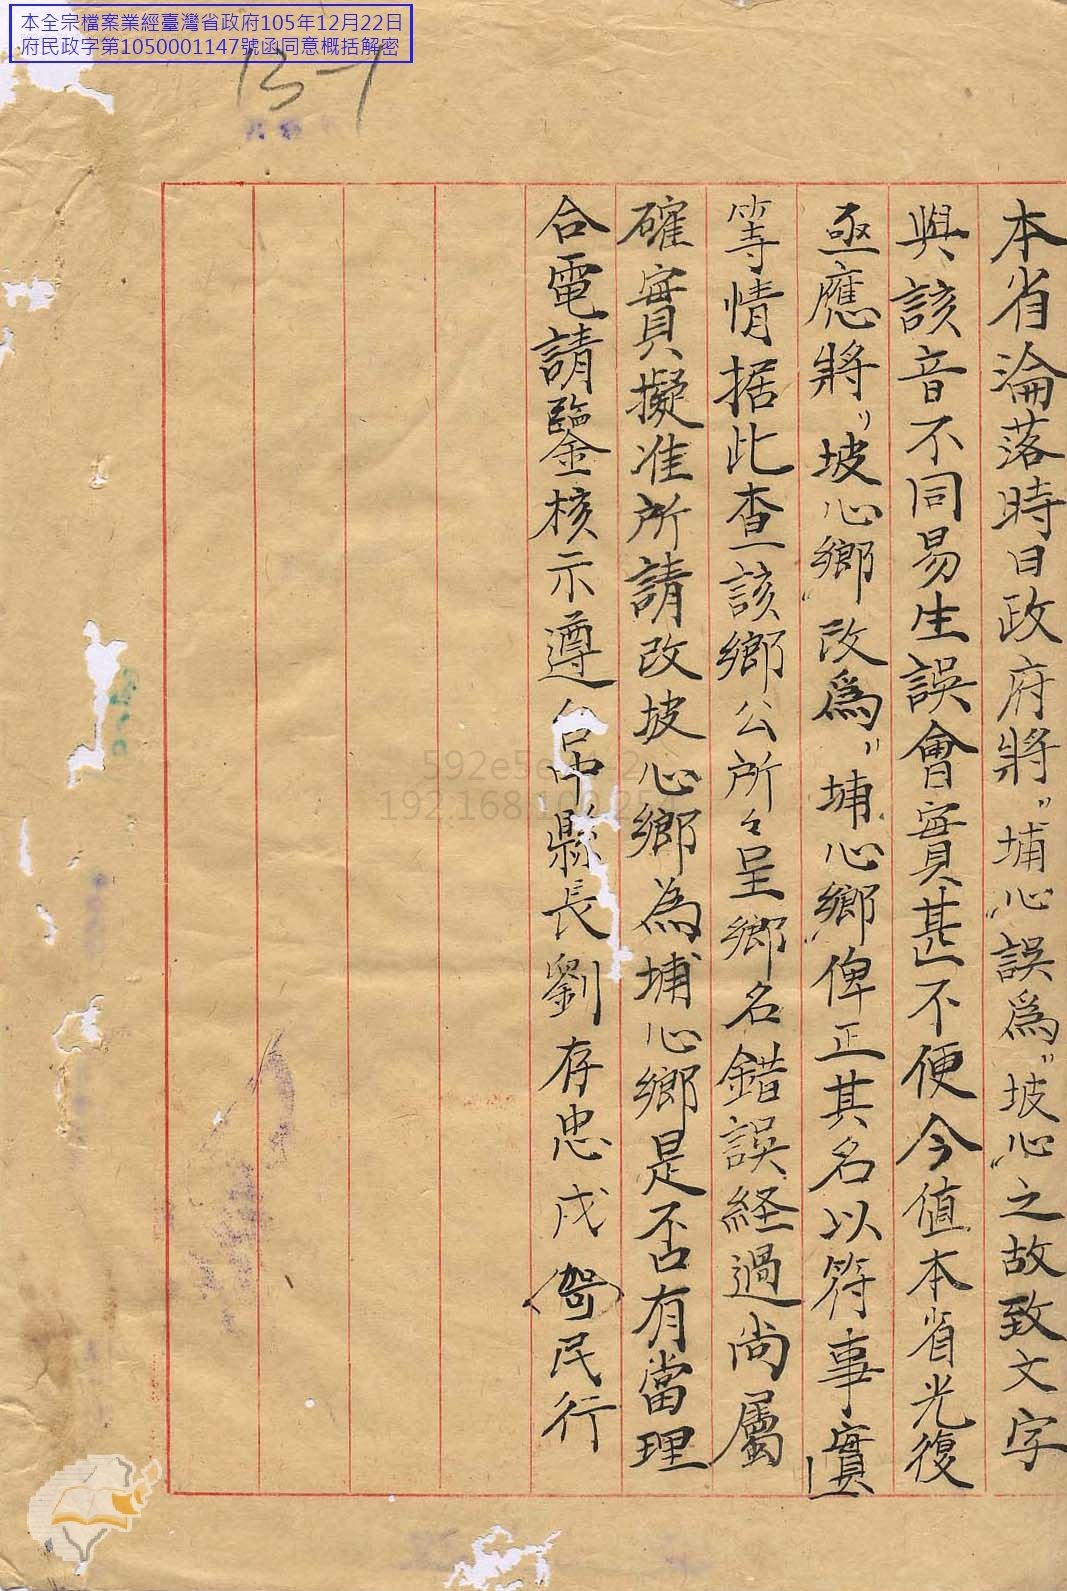 本全宗檔案業經臺灣省政府105年12月22日
府民政字第1050001147號函同意概括解密
13-1
本省淪落時日政府將"埔心"誤爲"坡心"之故致文字
與該音不同易生誤會實甚不便今值本省光復
亟應將"坡心鄉"改爲"埔心鄉"俾正其名以符事實
等情据此查該鄉公所々呈鄉名錯誤経過尚屬
確實擬准所請改坡心鄉為埔心鄉是否有當理
合電請鑒核示遵台中縣長劉存忠戌 民行
192.168.100.254